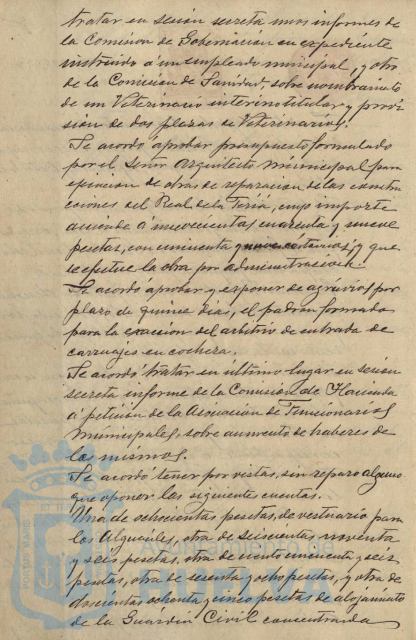 tratar en sesion secreta unos informes de
la Comision de Gobernación en expediente
instruido á un empleado municipal, y otro
de la Comision de Sanidad, sobre nombramto
de un Veterinario interino titular y provi-
sion de dos plazas de Veterinarios.
Se acordó aprobar presupuesto formulado
por el Señor Arquitecto municipal para
ejecucion de obras de reparacion de las constru
cciones del Real de la Feria, cuyo importe
asciende á novecientas cuarenta y nueve
pesetas, con cincuenta y céntimos, y que
se efectue la obra por administración.
Se acordó aprobar y exponer de agravios por
plazo de quince dias, el padron formado
para la exaccion del arbitrio de entrada de
carruajes en cochera.
Se acordó tratar en ultimo lugar en sesion
secreta informe de la Comision de Hacienda
á peticion de la Asociacion de Funcionarios
municipales, sobre aumento de haberes de
los mismos.
Se acordó tener por vistas, sin reparo alguno
que oponer las siguientes cuentas.
Una de ochocientas pesetas, de vestuario para
los Alguaciles, otra de seiscientas noventa
y seis pesetas, otra de ciento cincuenta y seis
pesetas, otra de sesenta y ocho pesetas, y otra de
doscientas ochenta y cinco pesetas de alojamto
de la Guardia Civil concentrada